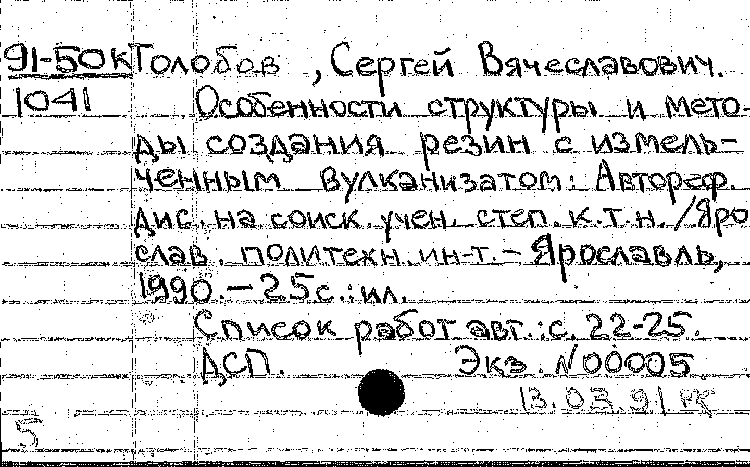 91-50к Голобов, Сергей Вячеславович.
1041 Особенности структуры и мето-
ды создания резин с измель-
ченным вулканизатом: Автореф.
дис. на соиск. учен. степ. к.т.н. / Яро
слав. политехн. ин-т. - Ярославль,
1990. - 25с.: ил.
Список работ авт.: с. 22-25.
ДСП. Экз. N00005.
13.03.91
5